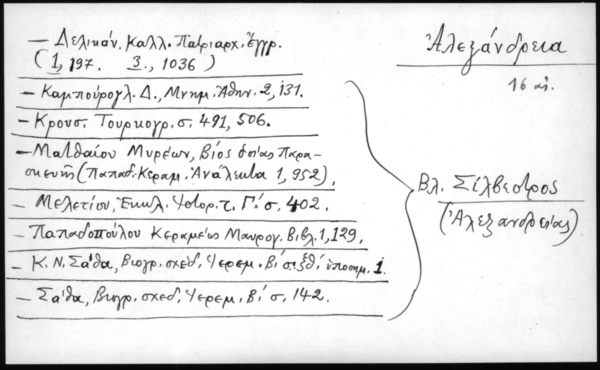 — Δελικάν. Καλλ. Πατριαρχ. Ἔγγρ.
(1, 197. 3., 1036)
— Καμπούρογλ. Δ., Μνημ. Ἀθην. 2, 131.
— Κρουσ. Τουρκογρ. σ. 491, 506.
— Ματθαίου Μυρέων, Βίος ὁσίας Παρα-
σκευῆς (Παπαδ. Κεραμ. Ἀνάλεκτα 1, 952),
— Μελετίου, Ἐκκλ. Ἱστορ. τ. Γ΄ σ. 402.
— Παπαδοπούλου Κεραμέως Μαυρογ. Βιβλ. 1, 129,
— Κ. Ν. Σάθα, Βιογρ. σχεδ. Ἱερεμ. Β΄ σ. ξθ΄ ὑποσημ. 1.
— Σάθα, Βιογρ. σχεδ. Ἱερεμ. Β΄ σ. 142.
Ἀλεξάνδρεια
16 αἰ.
Βλ. Σίλβεστρος
(Ἀλεξανδρείας)